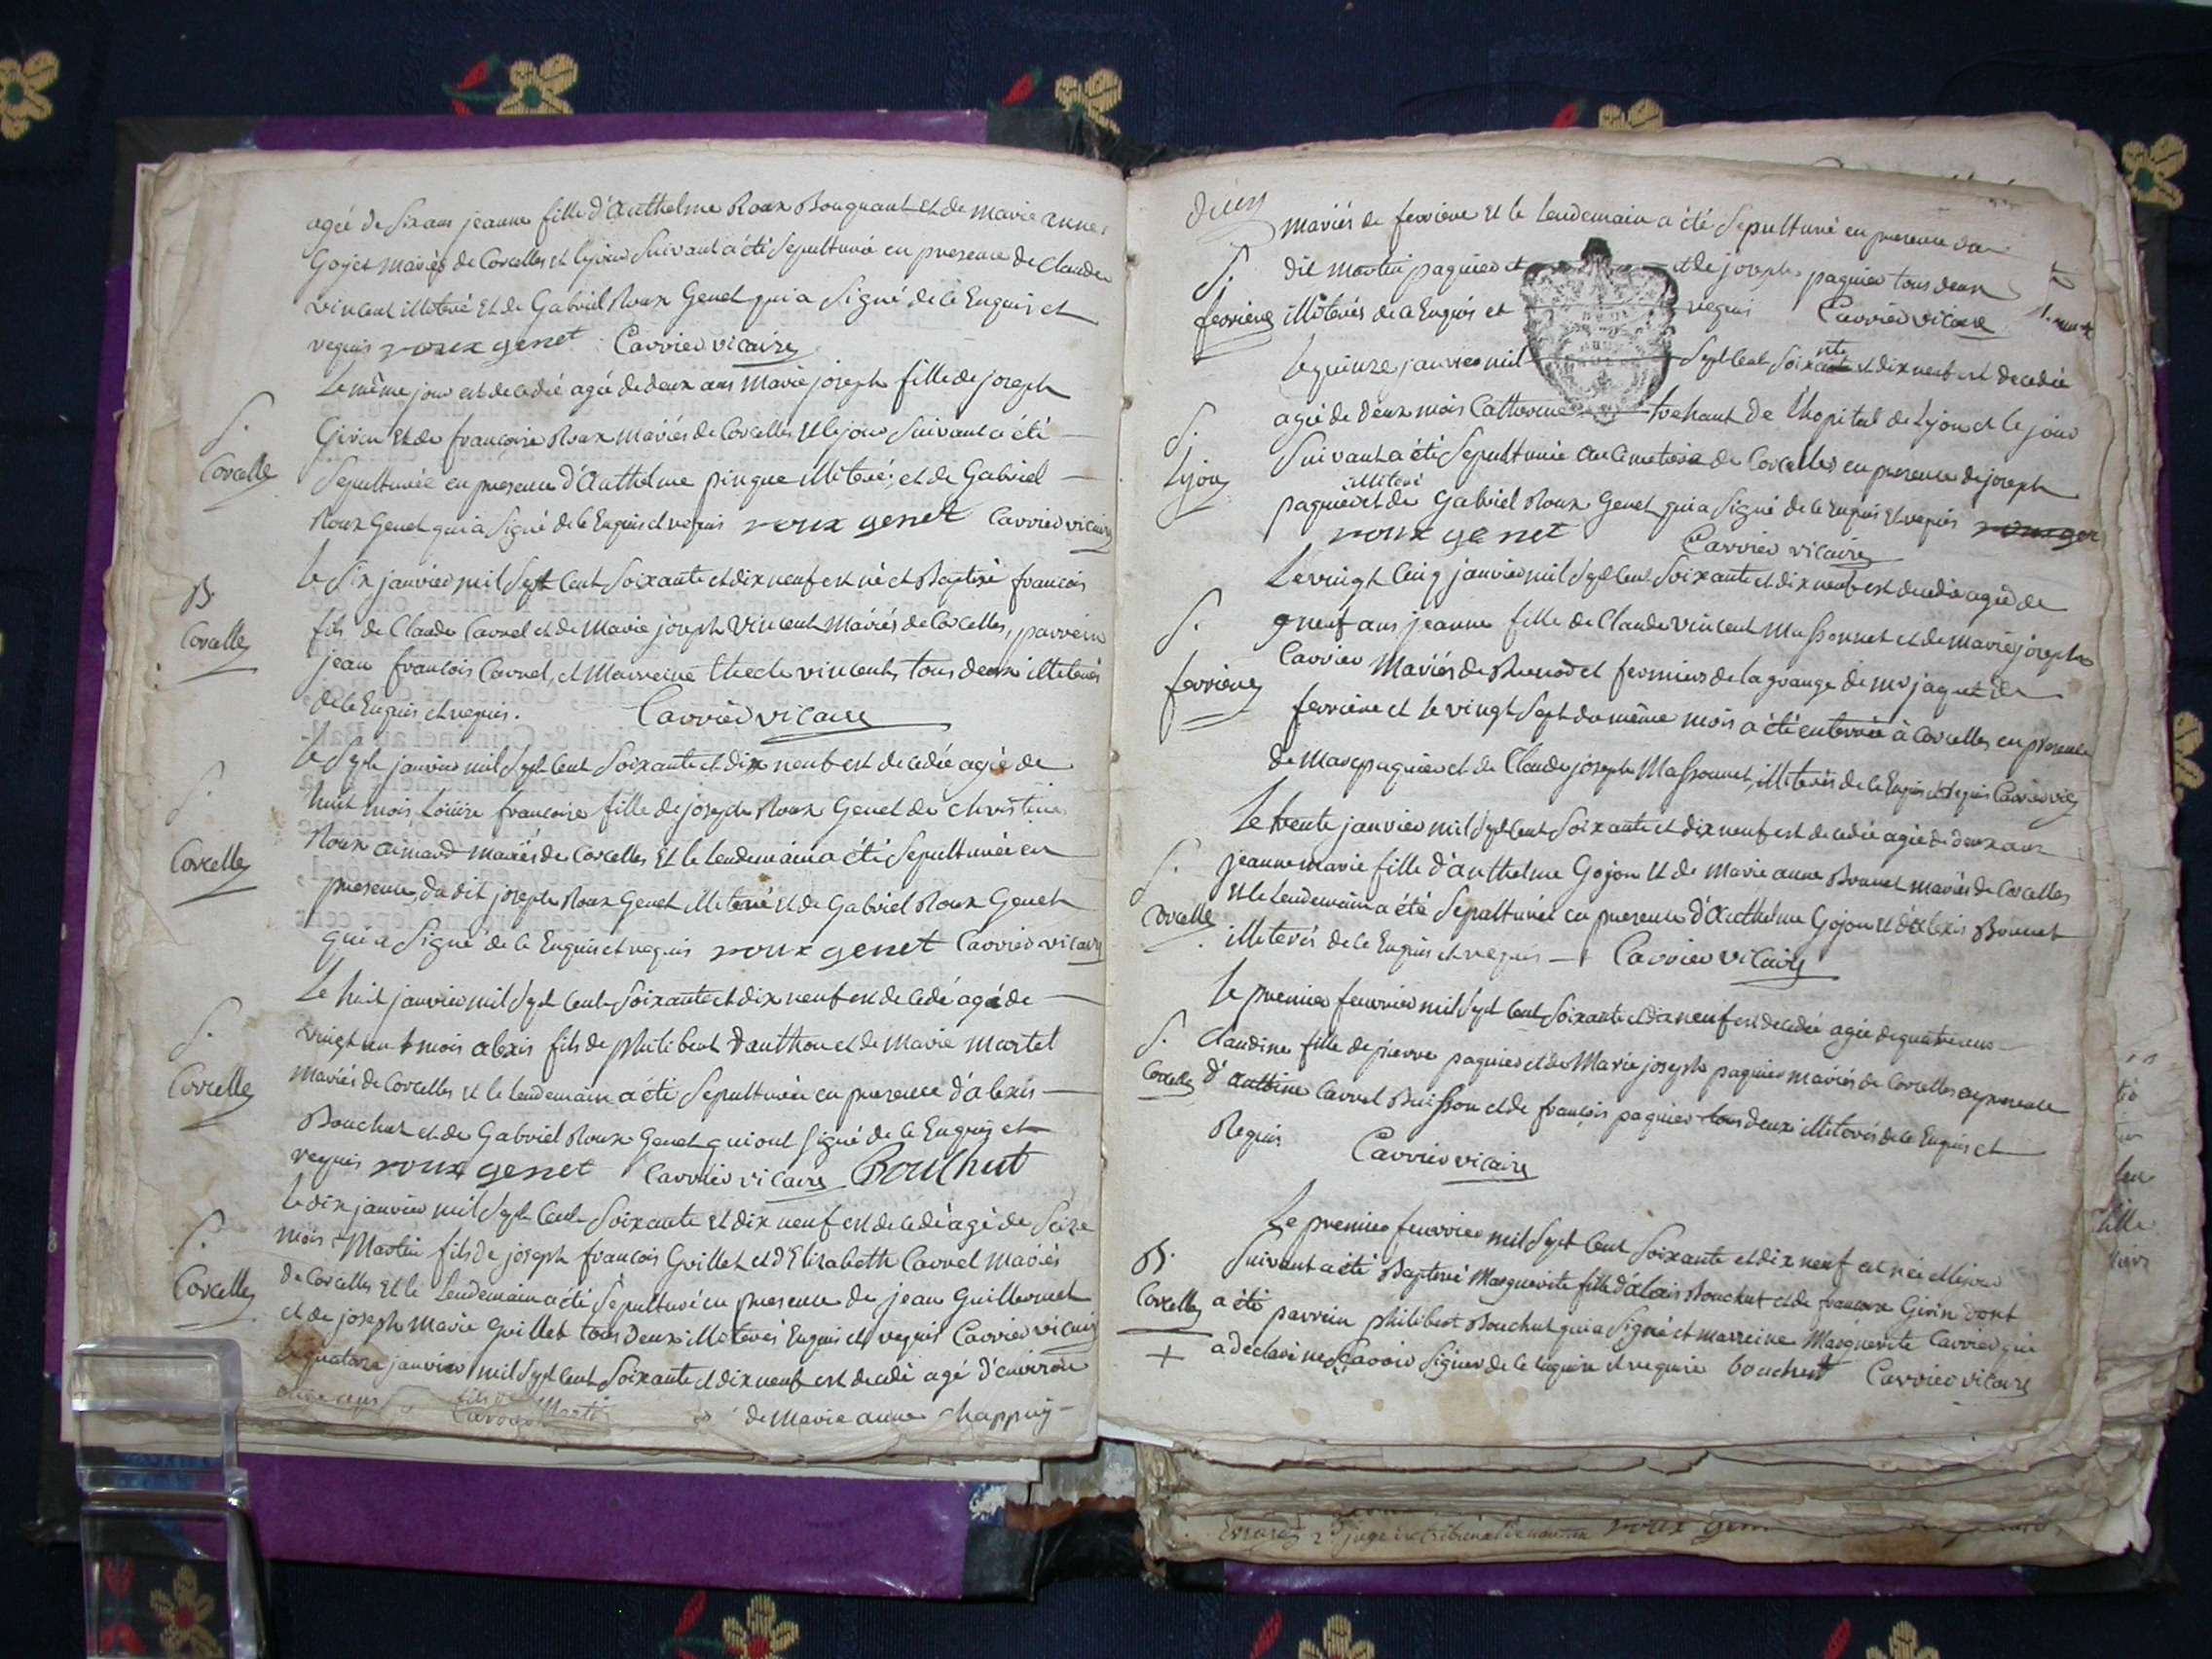 agée de six ans jeanne fille d'Anthelme Roux Bouquant et de marie anne
Gojet mariés de Corcelles et le jour suivant a été sepulturée en presence de claude
vincent illiteré et de Gabriel Roux Genet qui a signé de ce Enquis et
requis roux genet Carrier vicaire
Le même jour est decedée agée de deux ans marie joseph fille de joseph
S.
Girin et de francoise Roux mariés de Corcelles et le jour suivant a été
Corcelle
sepulturée en presence d'Anthelme pingue illiteré, et de Gabriel
Roux Genet qui a signé de ce Enquis et requis roux genet Carrier vicaire
Le six janvier mil sept cent soixante et dix neuf est né et Baptisé francois
B.
fils de Claude Carrel et de Marie joseph Vincent mariés de Corcelles, parrein
Corcelle
jean francois Carrel, et Marreine thecle vincent, tous deux illiterés
de ce Enquis et requis. Carrier vicaire
Le sept janvier mil sept cent soixante et dix neuf est decedée agée de
S.
huit mois Louise francoise fille de joseph Roux Genet de christine
Roux aimard mariés de Corcelles et le lendemain a été sepulturée en
Corcelle
presence, du dit joseph Roux Genet illiteré et de Gabriel Roux Genet
qui a signé de ce Enquis et requis roux genet Carrier vicaire
Le huit janvier mil sept cent soixante et dix neuf est decedé agé de
S.
vingt un mois alexis fils de philibert Dauthon et de marie martel
Corcelle
mariés de Corcelles et le lendemain a été sepulturée en presence d'alexis
Bouchut et de Gabriel Roux Genet qui ont signé de ce Enquis et
requis roux genet Carrier vicaire Bouchut
Le dix janvier mil sept cent soixante et dix neuf est decedé agé de seize
S.
mois Martin fils de joseph francois Guillet et d'Elizabeth Carrel mariés
Corcelle
de Corcelles et le Lendemain a été sepulturé en presence de jean Guillermet
et de joseph marie Guillet tous deux illiterés Enquis et requis Carrier vicaire
Le quatorze janvier mil sept cent soixante et dix neuf est decedé agé d'environ
onze ans fils de Martin de Marie anne Chappuy
deux
mariés de ferriere et le lendemain a été sepulturé en presence du
S.
dit martin paquier et et de joseph paquier tous deux
ferriere
illiterés de ce Enquis et requis Carrier vicaire
Le quinze janvier mil sept cent soixante et dix neuf est decedée
agée de deux mois Catherine trehant de l'hopital de Lyon et le jour
S.
suivant a été sepulturée au cimetiere de Corcelles en presence de joseph
Lyon
illiteré
paquier et de Gabriel Roux Genet qui a signé de ce Enquis et requis
roux genet Carrier vicaire
Le vingt cinq janvier mil sept cent soixante et dix neuf est decedée agée de
S.
neuf ans jeanne fille de Claude vincent Massonnet et de marie joseph
ferriere
Carrier Mariés de et fermiers de la grange de mr jaquet de
ferriere et le vingt sept du même mois a été enterrée à Corcelles en presence
de Marc paquier et de Claude joseph Massonnet, illiterés de ce Enquis et requis Carrier vic
Le trente janvier mil sept cent soixante et dix neuf est decedée agée de deux ans
S.
jeanne marie fille d'anthelme Gojon et de marie anne Brunet mariés de Corcelles
Corcelle
et le lendemain a été sepulturée en presence d'Anthelme Gojon et d'alexis Bonnet
illiterés de ce Enquis et requis Carrier vicaire
Le premier fevrier mil sept cent soixante et dix neuf est decedée agée de quatre ans
S.
Claudine fille de pierre paquier et de Marie joseph paquier mariés de Corcelles en presence
Corcelle
d'Antoine Carrel Buisson et de françois paquier tous deux illiterés de ce Enquis et
Requis Carrier vicaire
Le premier fevrier mil sept cent soixante et dix neuf est née et le jour
B.
suivant a été Baptisée Marguerite fille d'alexis Bouchut et de francoise Girin dont
Corcelle
a été parrein philibert Bouchut qui a signé et marreine Marguerite Carrier qui
+
a declaré ne scavoir signer de ce enquise et requise bouchut Carrier vicaire
roux gen